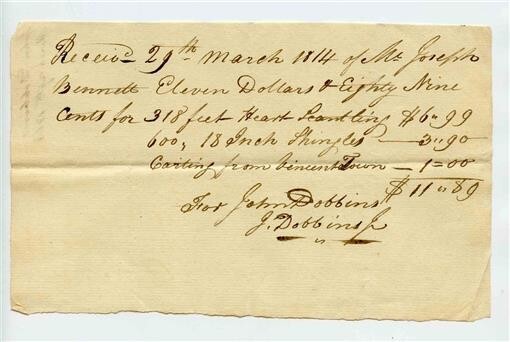 Receivd 29th March 1814 of Mr Joseph
Bennett Eleven Dollars & Eighty Nine
Cents for 318 feet Heart Scantling $6"99
600, 18 Inch Shingles — 3"90
Carting from Vincent Town — 1=00
$11"89
For John Dobbins
J. Dobbins Jr